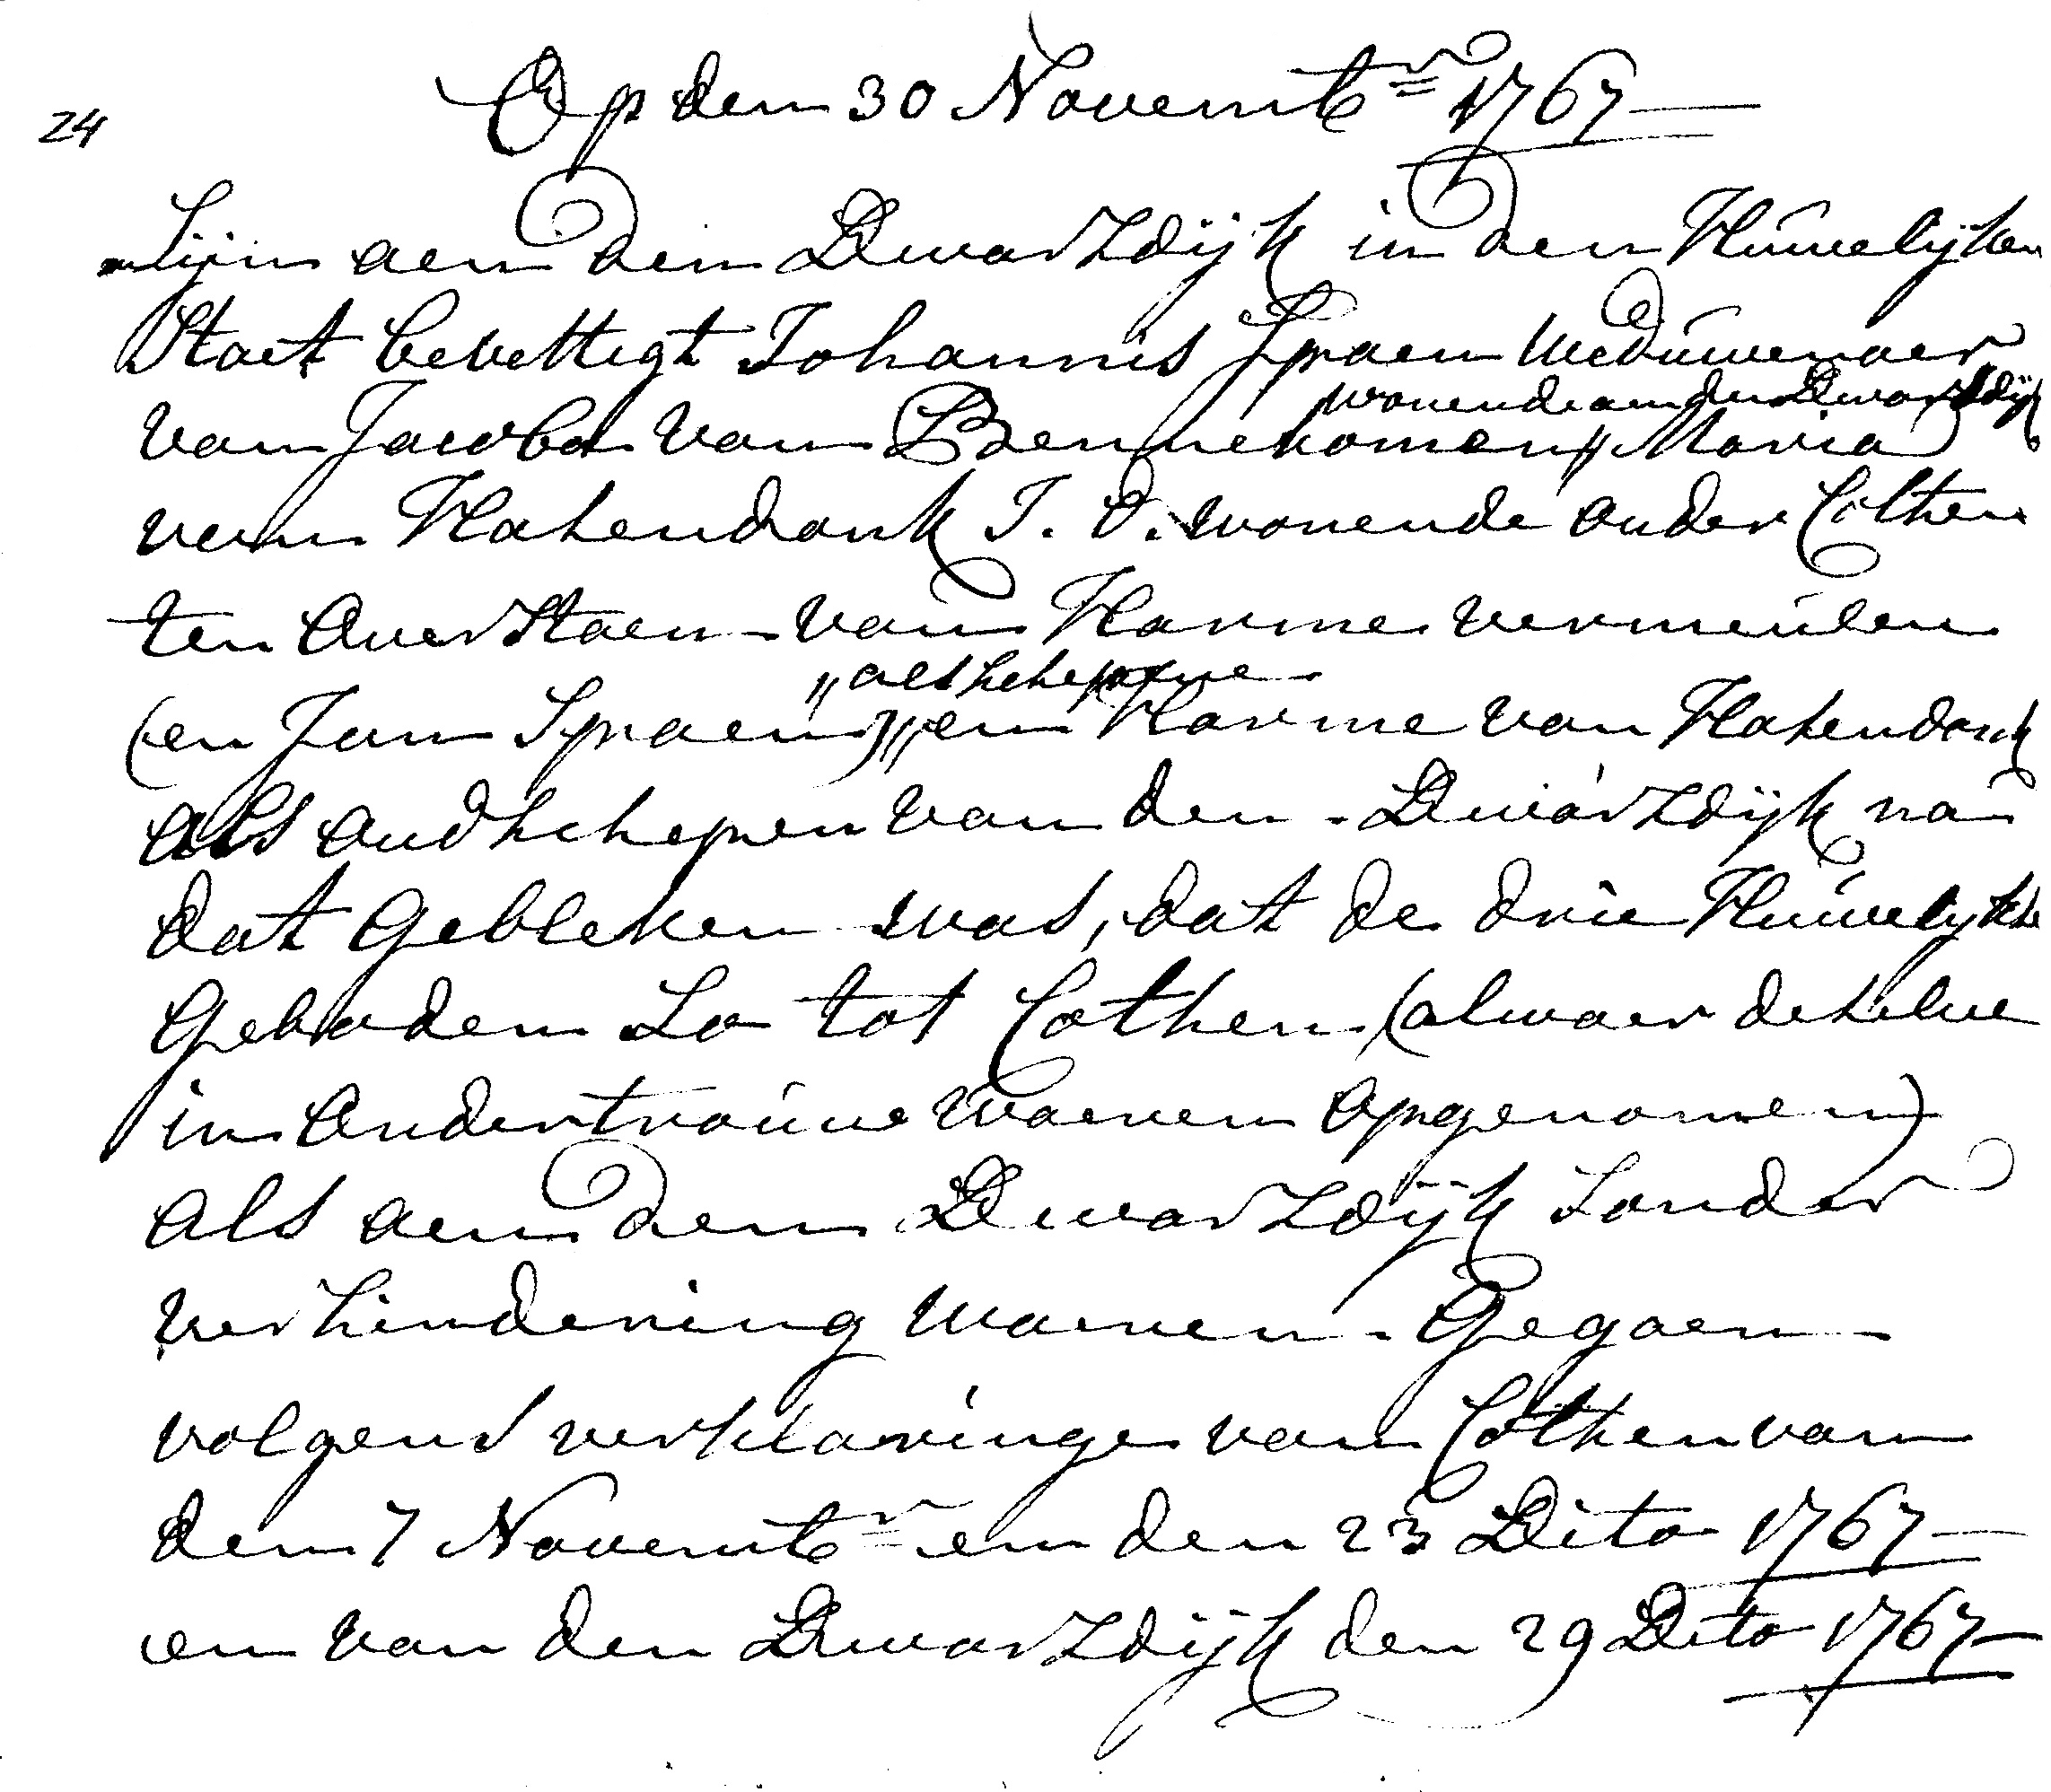 24
Op den 30 Novemb<sup>r</sup> 1767
Sijn aen den Dwarsdijk in den Huwelijken
Staet bevestigt Johannis Spaen Weduwenaer
van Jacoba van Bennekomen // Maria
wonende aen den Dwarsdijk
van Hatendonk J. D. wonende onder Cothen
ten overstaen van Harme vermeulen
// als schepene
(en Jan Spaen) // en Harme van Hatendonk
als oud schepen van den Dwarsdijk na
dat Gebleken was, dat de drie Huwelijkse
Geboden So tot Cothen (alwaer deselve
in Ondertrouwe waeren opgenomen)
als aen den Dwarsdijk Sonder
verhindering waeren Gegaen
volgens verklaringe van Cothen van
den 7 Novemb<sup>r</sup> en den 23 Dito 1767
en van den Dwarsdijk den 29 Dito 1767